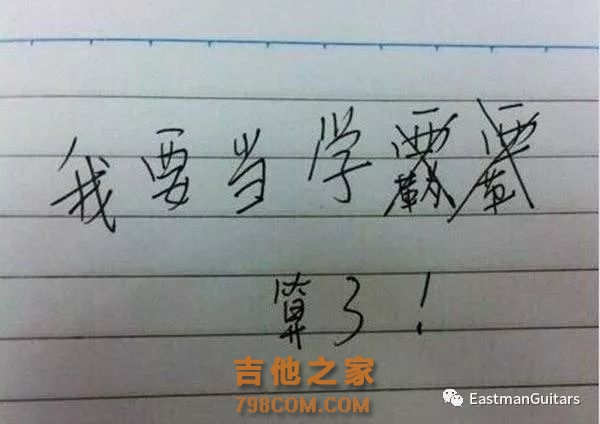 我要当学
算了!
吉他之家
798COM.COM
EastmanGuitars